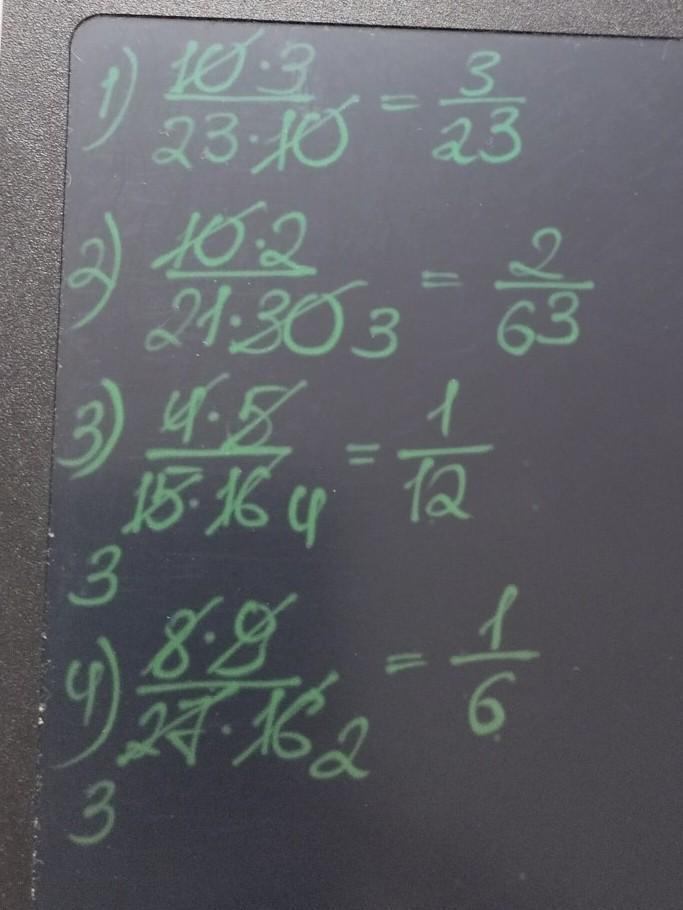 1) 10·3 / 23·10 = 3 / 23
2) 10·2 / 21·30 3 = 2 / 63
3) 4·5 / 15·16 4 = 1 / 12
3
4) 8·9 / 27·16 2 = 1 / 6
3